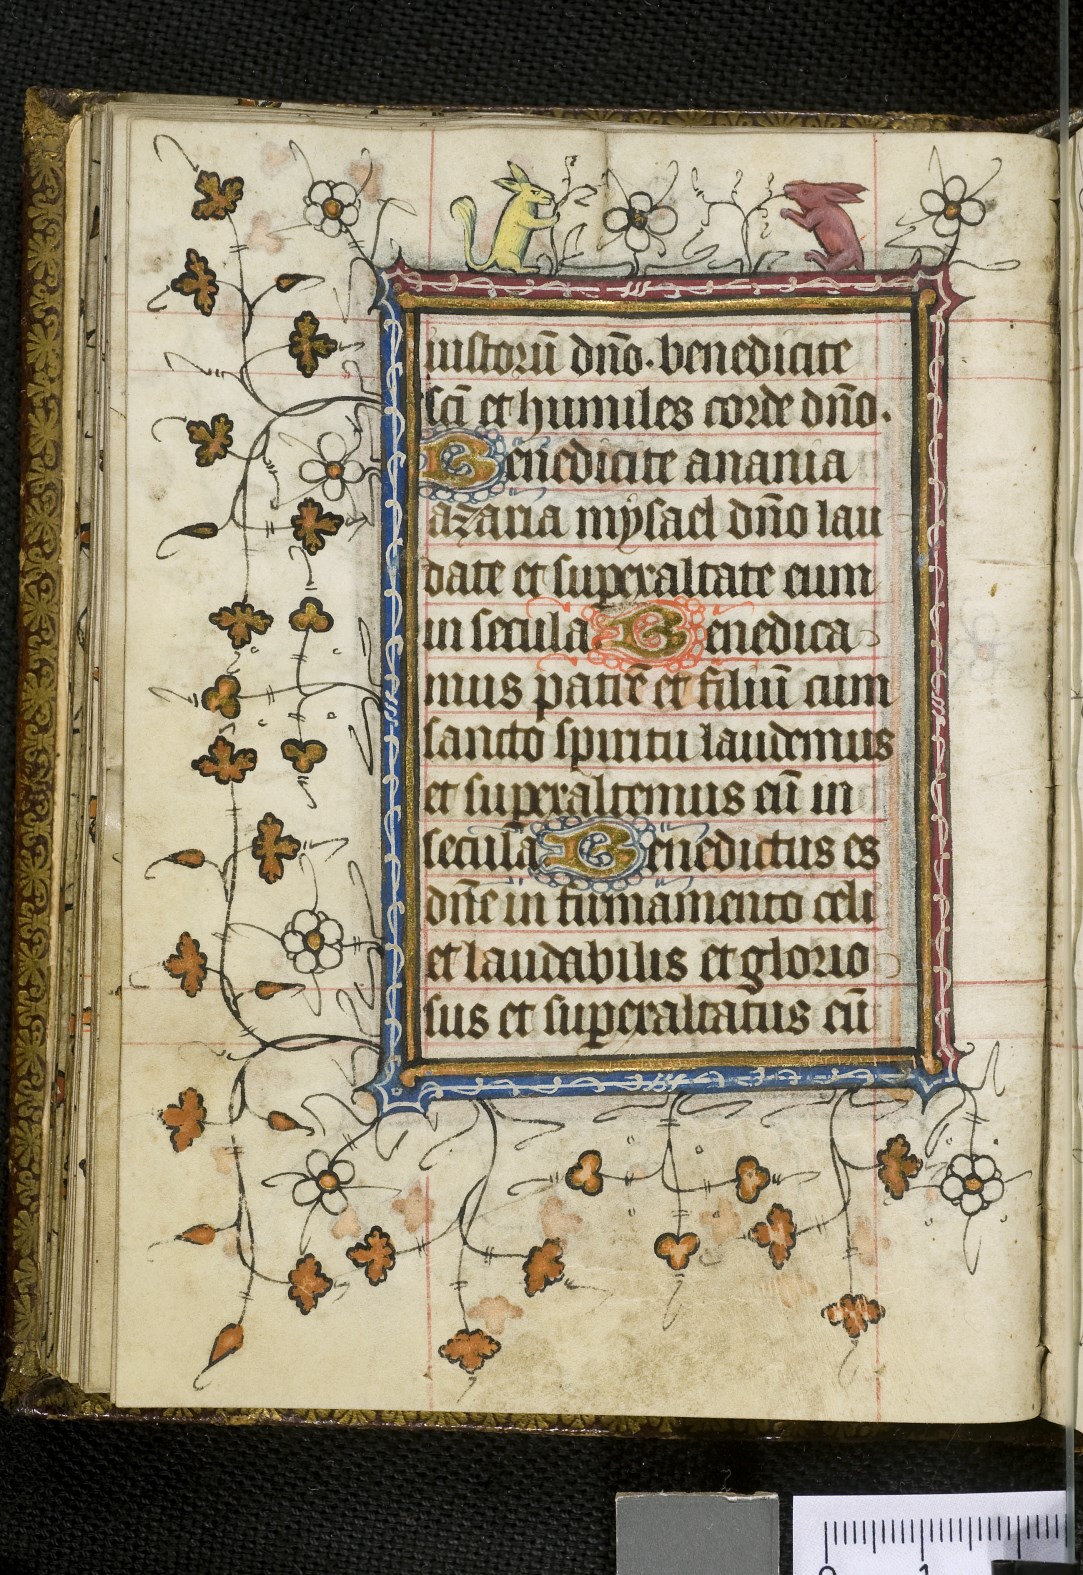 iustorū dn̄o. benedicite
scī et humiles corde dn̄o.
Benedicite anania
azaria mysael dn̄o lau
date et superaltate eum
in secula Benedica
mus patrē et filiū cum
sancto spiritu laudemus
et superaltemus eū in
secula Benedictus es
dn̄e in firmamento celi
et laudabilis et glorio
sus et superaltatus eū
0 1